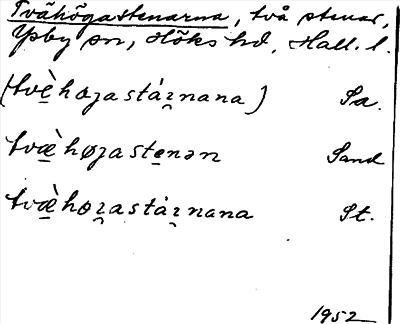 Tvähögastenarna, två stenar,
Ysby sn, Höks hd, Hall. l.
(tvæ̀høgastárnana) Sa.
tvæ̀høgastenən Sand
tvæ̀høgastárnana St.
1952